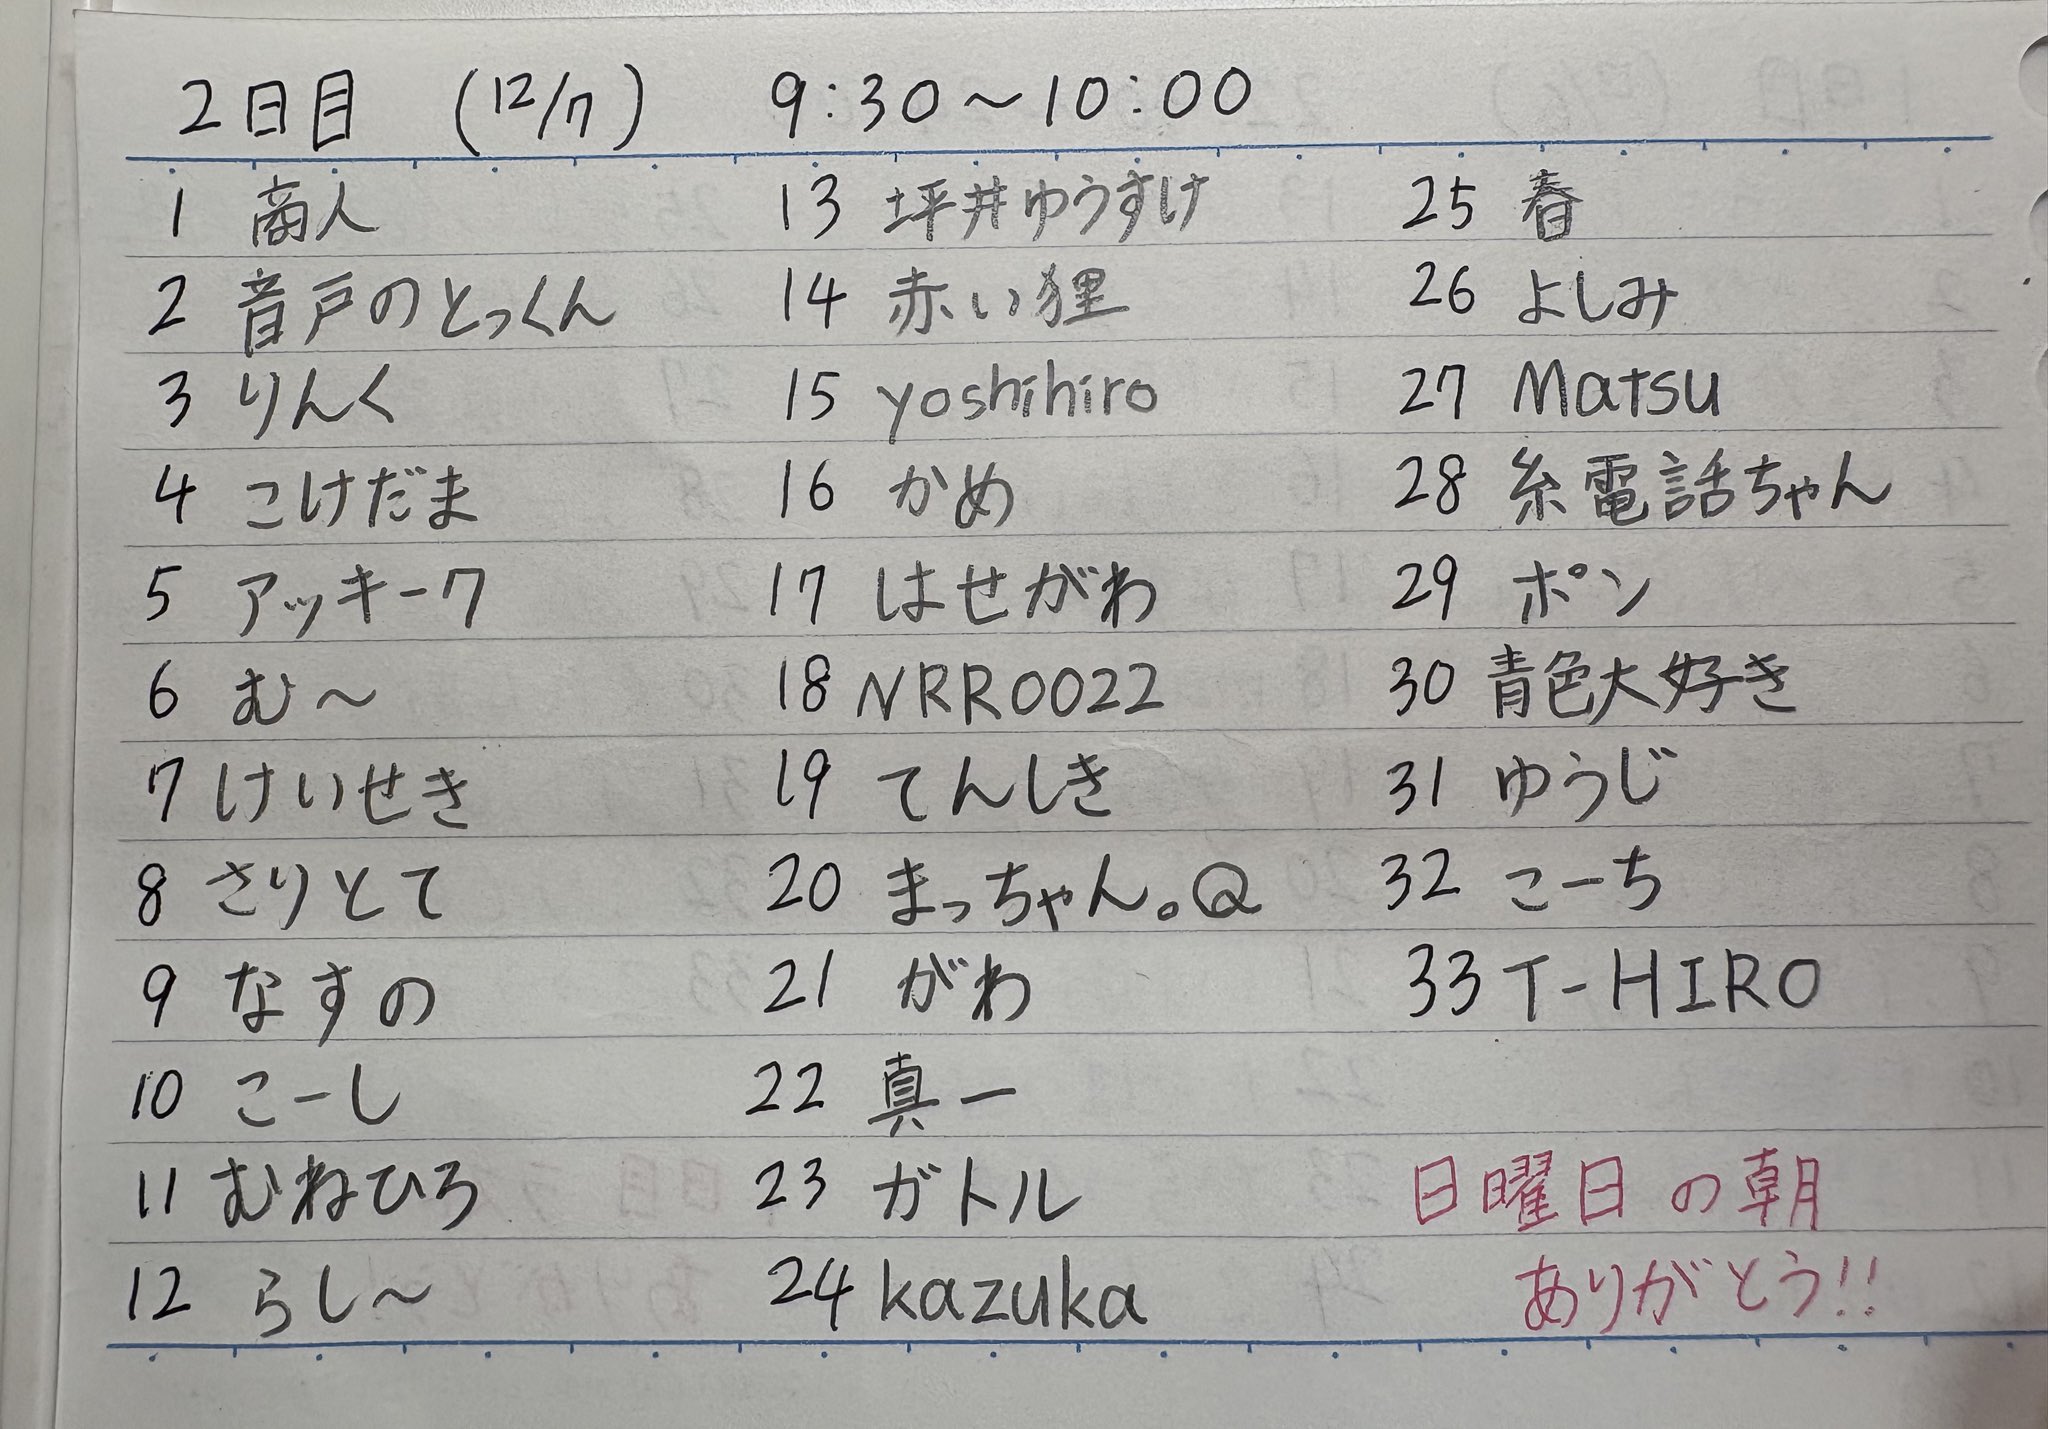 2日目 (12/7) 9:30〜10:00
1 商人
2 音戸のとっくん
3 りんく
4 こけだま
5 アッキー7
6 む〜
7 けいせき
8 さりとて
9 なすの
10 こーし
11 むねひろ
12 らし〜
13 坪井ゆうすけ
14 赤い狸
15 yoshihiro
16 かめ
17 はせがわ
18 NRR0022
19 てんしき
20 まっちゃん。Q
21 がわ
22 真一
23 ガトル
24 kazuka
25 春
26 よしみ
27 Matsu
28 糸電話ちゃん
29 ポン
30 青色大好き
31 ゆうじ
32 こーち
33 T-HIRO
日曜日の朝
ありがとう!!